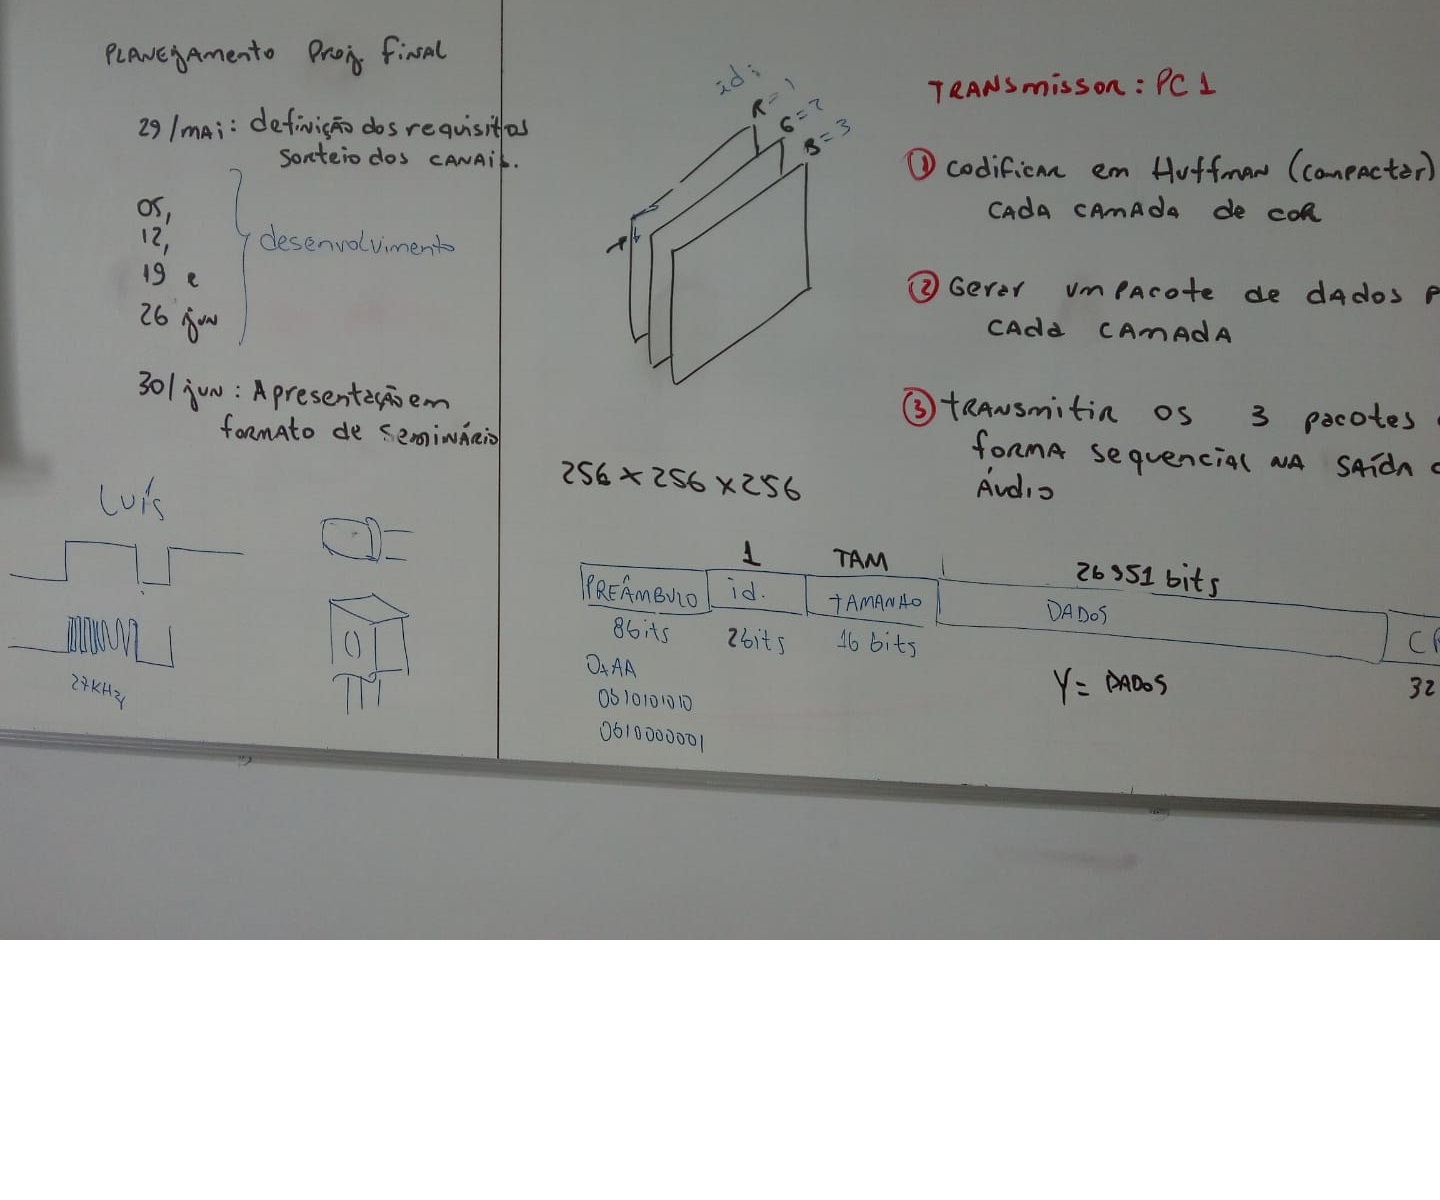 PLANEJAMENTO PROJ. FINAL
29/MAI: definição dos requisitos
Sorteio dos CANAIS.
05,
12,
19 e
26 jun
desenvolvimento
30/jun: Apresentação em
formato de Seminário
Luís
27KHz
id:
R=1
G=2
B=3
256 x 256 x 256
TRANSMISSOR: PC 1
① Codificar em Huffman (compactar)
CADA CAMADA de COR
② Gerar um PACOTE de DADOS P
CADA CAMADA
③ TRANSMITIR os 3 pacotes
forma sequencial NA SAÍDA
Áudio
1 TAM 26951 bits
PREÂMBULO id. TAMANHO DADOS
8bits 2bits 16 bits
0xAA
0b10101010
0b10000001
Y = DADOS
32